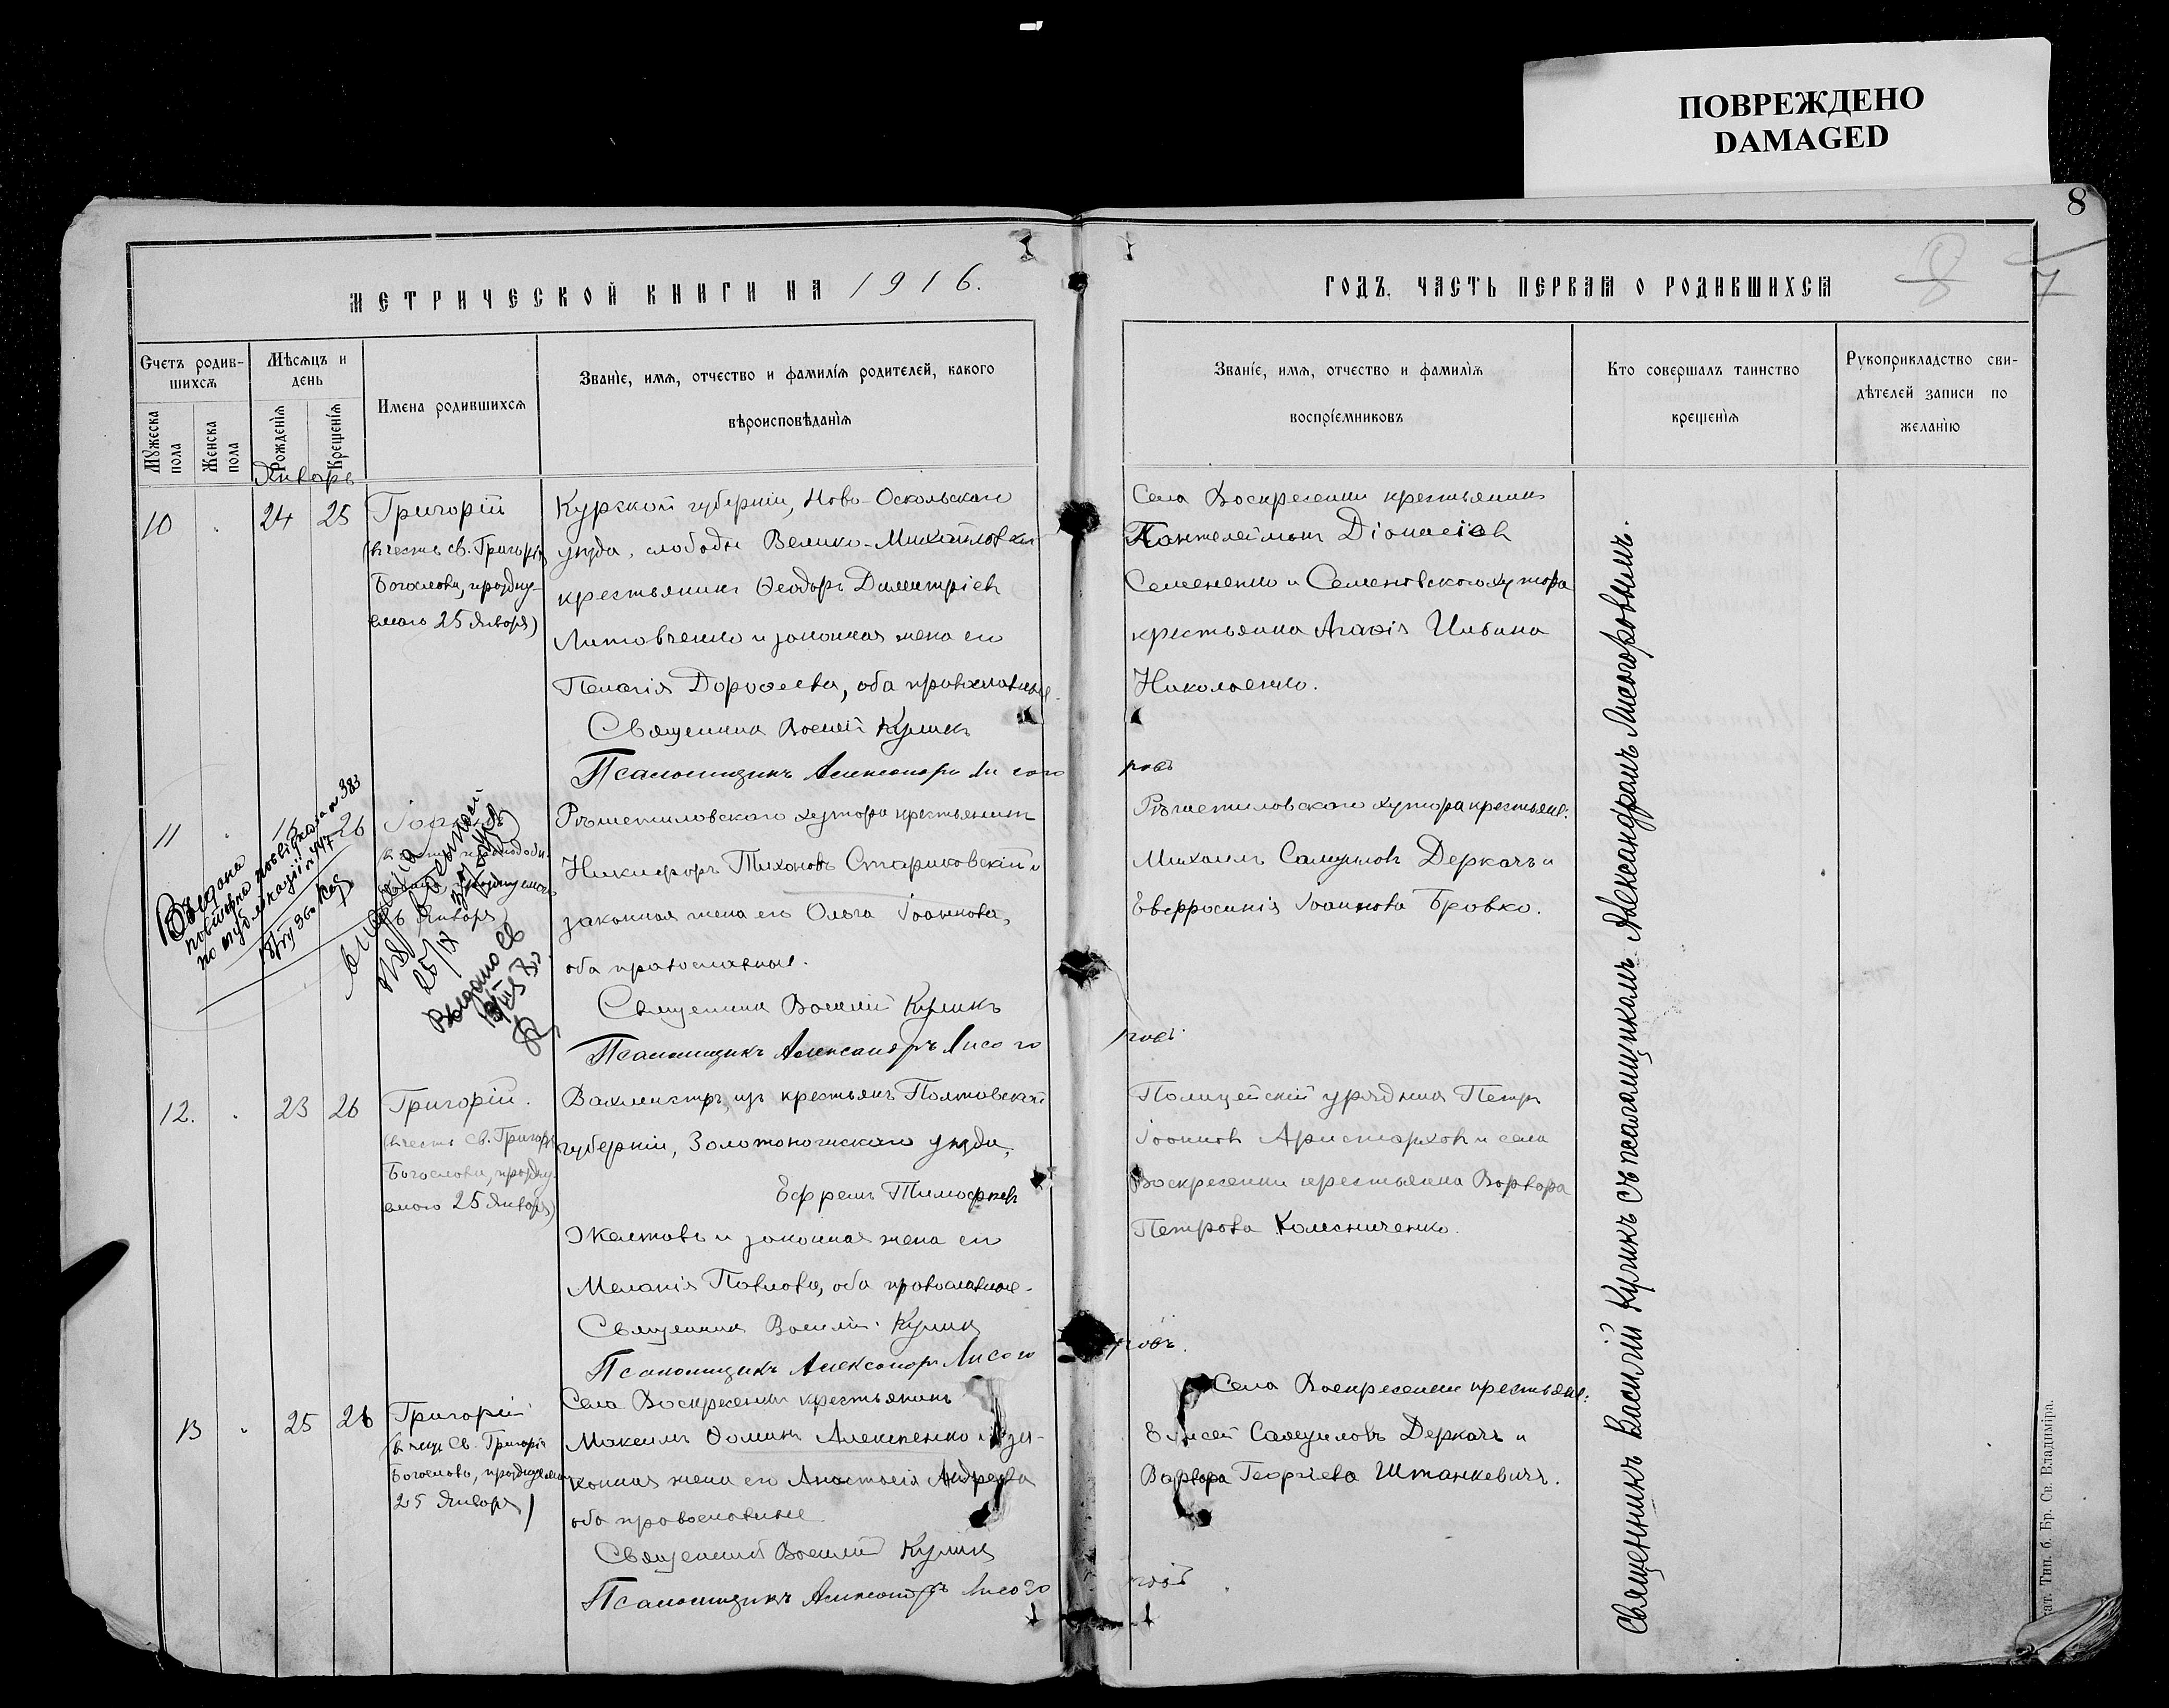 ПОВРЕЖДЕНО
DAMAGED
8
МЕТРИЧЕСКОЙ КНИГИ НА 1916.
ГОДЪ, ЧАСТЬ ПЕРВАЯ О РОДИВШИХСЯ
8
7
Счетъ родив-
шихся
Мужеска пола
Женска пола
Мѣсяцъ и
день
Рожденія
Крещенія
Имена родившихся
Званіе, имя, отчество и фамилія родителей, какого
вѣроисповѣданія
Званіе, имя, отчество и фамилія
воспріемниковъ
Кто совершалъ таинство
крещенія
Рукоприкладство сви-
дѣтелей записи по
желанію
Январь
10
24 25
Григорій
(въ честь св. Григорія
Богослова, праздну-
емаго 25 Января)
Курской губерніи, Ново-Оскольскаго
уѣзда, слободы Велико-Михайловки
крестьянинъ Ѳеодоръ Димитріевъ
Литовченко и законная жена его
Пелагія Дороѳеева, оба православные.
Священникъ Василій Куликъ
Псаломщикъ Александръ Лисого
ровъ
Села Воскресенки крестьянинъ
Пантелеймонъ Діонисіевъ
Семененко и Семеновского хутора
крестьянка Агафія Ильина
Николаенко.
11
26
Рѣшетиловскаго хутора крестьянинъ
Никифоръ Тихоновъ Стариковскій и
законная жена его Ольга Іоаннова,
оба православные.
Священникъ Василій Куликъ
Псаломщикъ Александръ Лисого
ровъ
Рѣшетиловскаго хутора крестьяне:
Михаилъ Самуиловъ Деркачъ и
Евфросинія Іоаннова Бровко.
Выдана
повторно
383
447
25/IX
Выдано св
12.
23 26
Григорій.
(въ честь Св. Григорія
Богослова, праздну-
емаго 25 Января)
Вахмистръ изъ крестьянъ Полтавской
губерніи, Золотоношскаго уѣзда,
Ефремъ Тимофеевъ
Желтовъ и законная жена его
Меланія Павлова, оба православные.
Священникъ Василій Куликъ
Псаломщикъ Александръ Лисого
ровъ.
Полицейскій урядникъ Петръ
Іоанновъ Аристарховъ и села
Воскресенки крестьянка Варвара
Петрова Колесниченко.
13
25 26
Григорій
(въ честь Св. Григорія
Богослова, празднуемаго
25 Января)
Села Воскресенки крестьянинъ
Максимъ Ѳоминъ Алексеенко и за-
конная жена его Анастасія Андреева
оба православные.
Священникъ Василій Куликъ
Псаломщикъ Александръ Лисого
ровъ
Села Воскресенки крестьяне:
Елисей Самуиловъ Деркачъ и
Варвара Георгіева Штанкевичъ.
Священникъ Василій Куликъ съ псаломщикомъ Александромъ Лисогоровымъ.
Тип. б. Бр. Св. Владиміра.